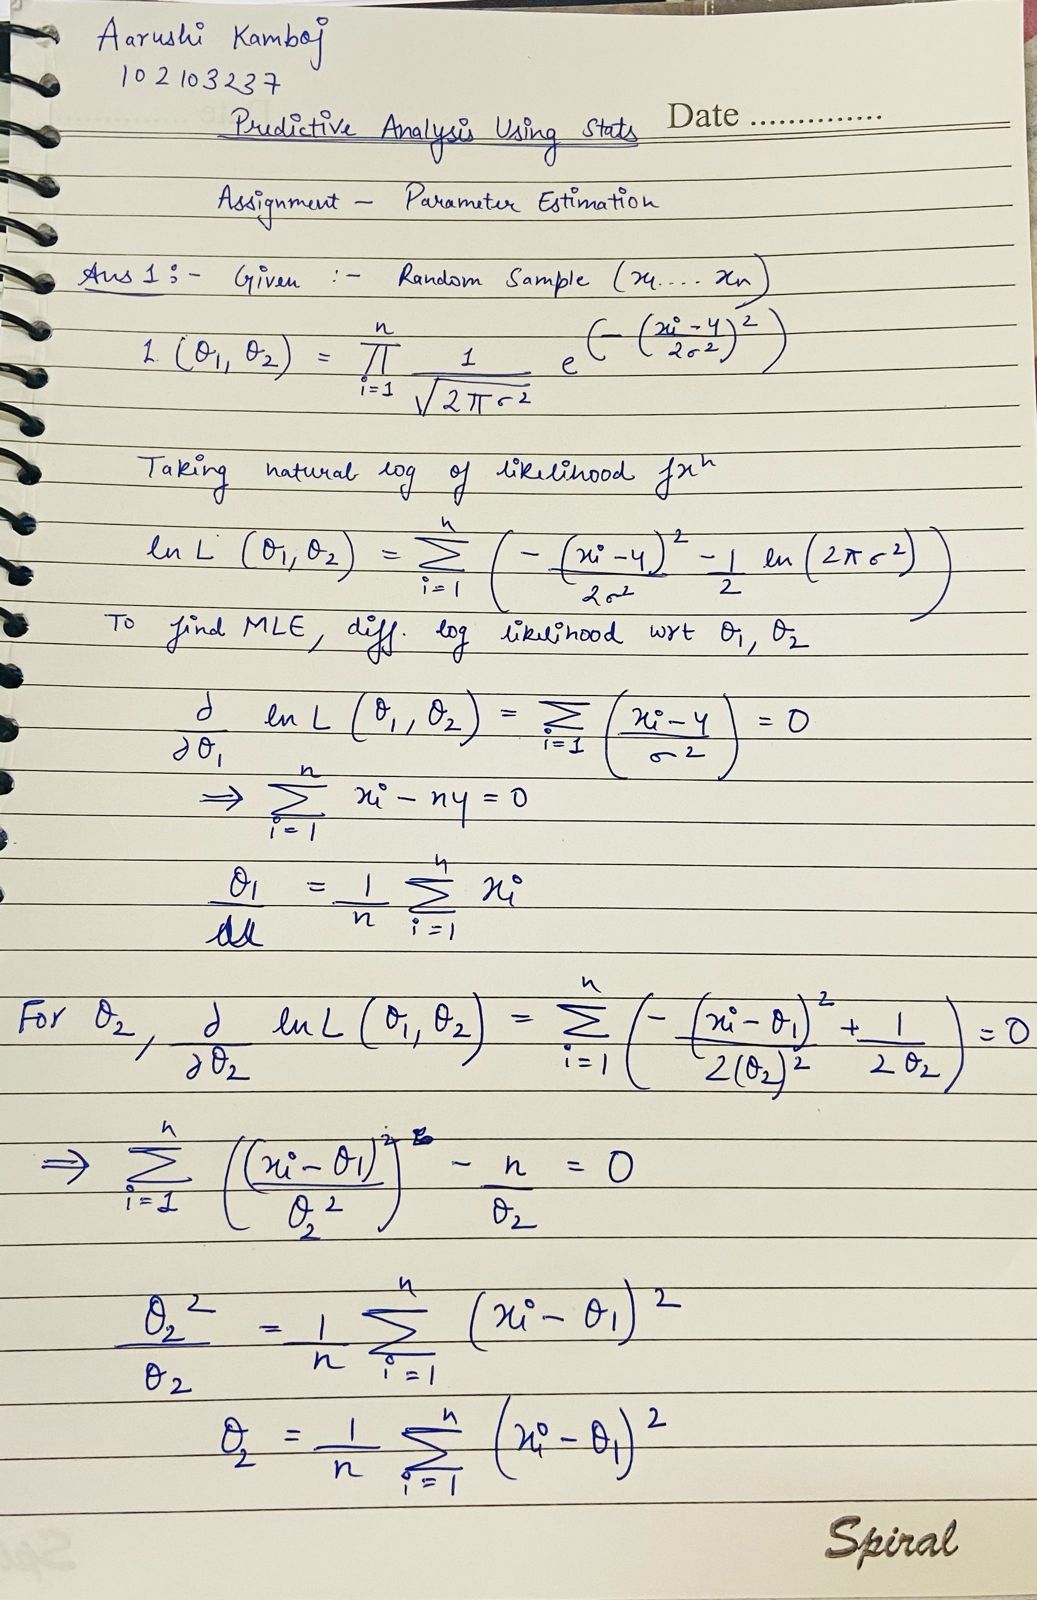 Aarushi Kamboj
102103237
Date ..............
Predictive Analysis Using Stats
Assignment - Parameter Estimation
Ans 1 :- Given :- Random Sample (x1.... xn)
L (θ1, θ2) = n∏i=1 1/√2πσ² e^(-(xi-4/2σ²)²)
Taking natural log of likelihood fxn
ln L (θ1, θ2) = n∑i=1 (-(xi-4)²/2σ² - 1/2 ln (2πσ²))
To find MLE, diff. log likelihood wrt θ1, θ2
∂/∂θ1 ln L (θ1, θ2) = ∑i=1 (xi-4/σ²) = 0
⇒ n∑i=1 xi - n4 = 0
θ1 = 1/n n∑i=1 xi
For θ2, ∂/∂θ2 ln L (θ1, θ2) = n∑i=1 (-(xi-θ1)²/2(θ2)² + 1/2θ2) = 0
⇒ n∑i=1 ((xi-θ1)²/θ2²) - n/θ2 = 0
θ2²/θ2 = 1/n n∑i=1 (xi-θ1)²
θ2 = 1/n n∑i=1 (xi-θ1)²
Spiral